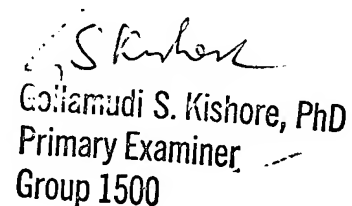 S Kishore
Gollamudi S. Kishore, PhD
Primary Examiner
Group 1500